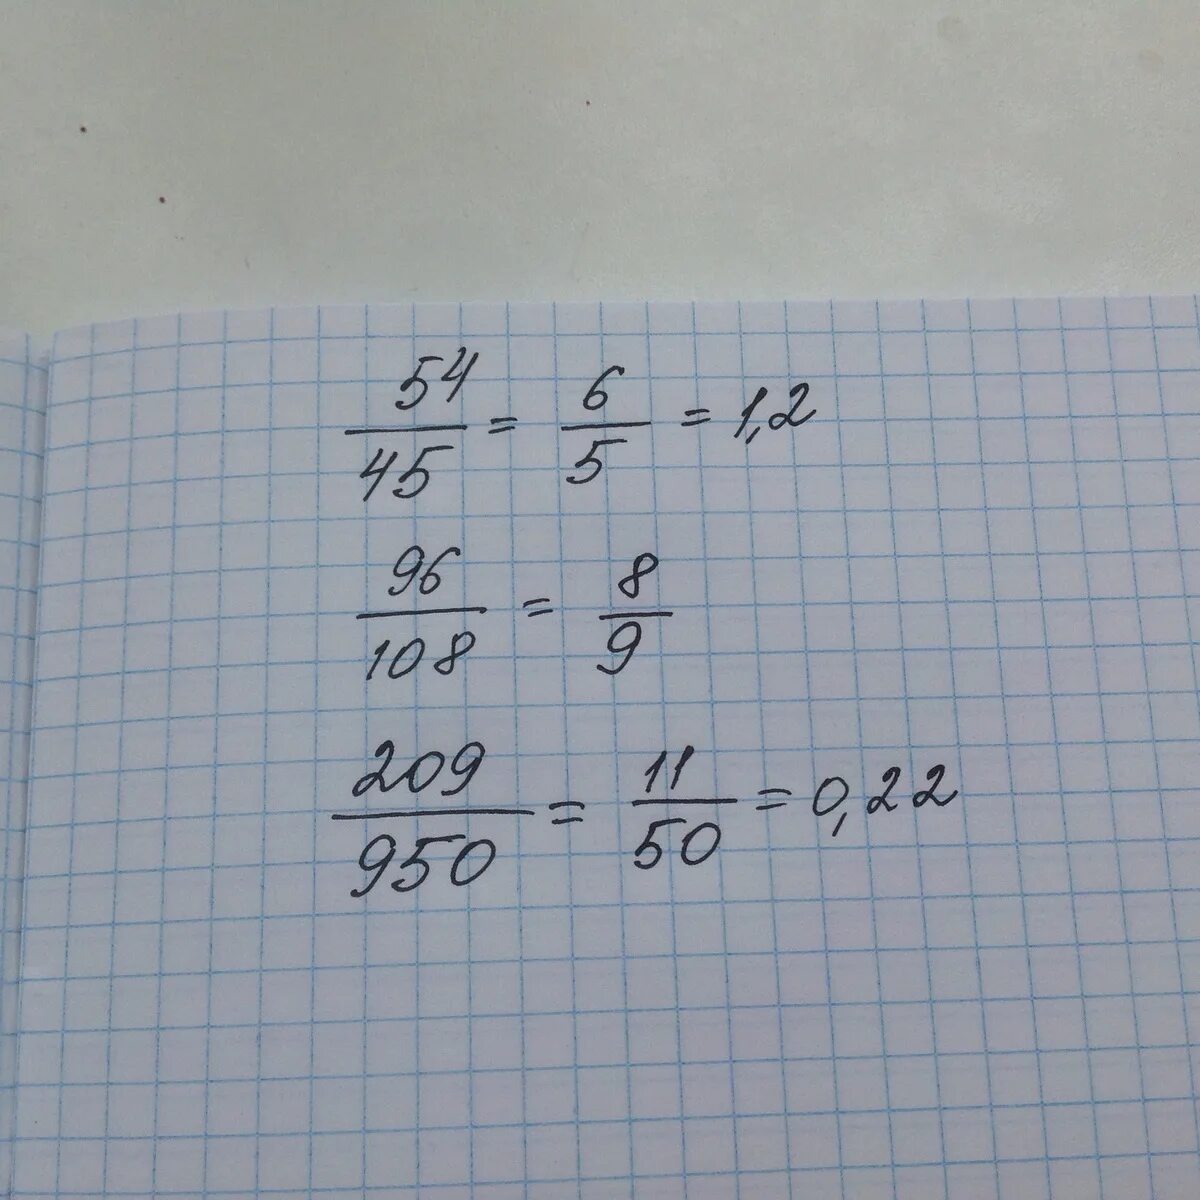 54/45 = 6/5 = 1,2
96/108 = 8/9
209/950 = 11/50 = 0,22